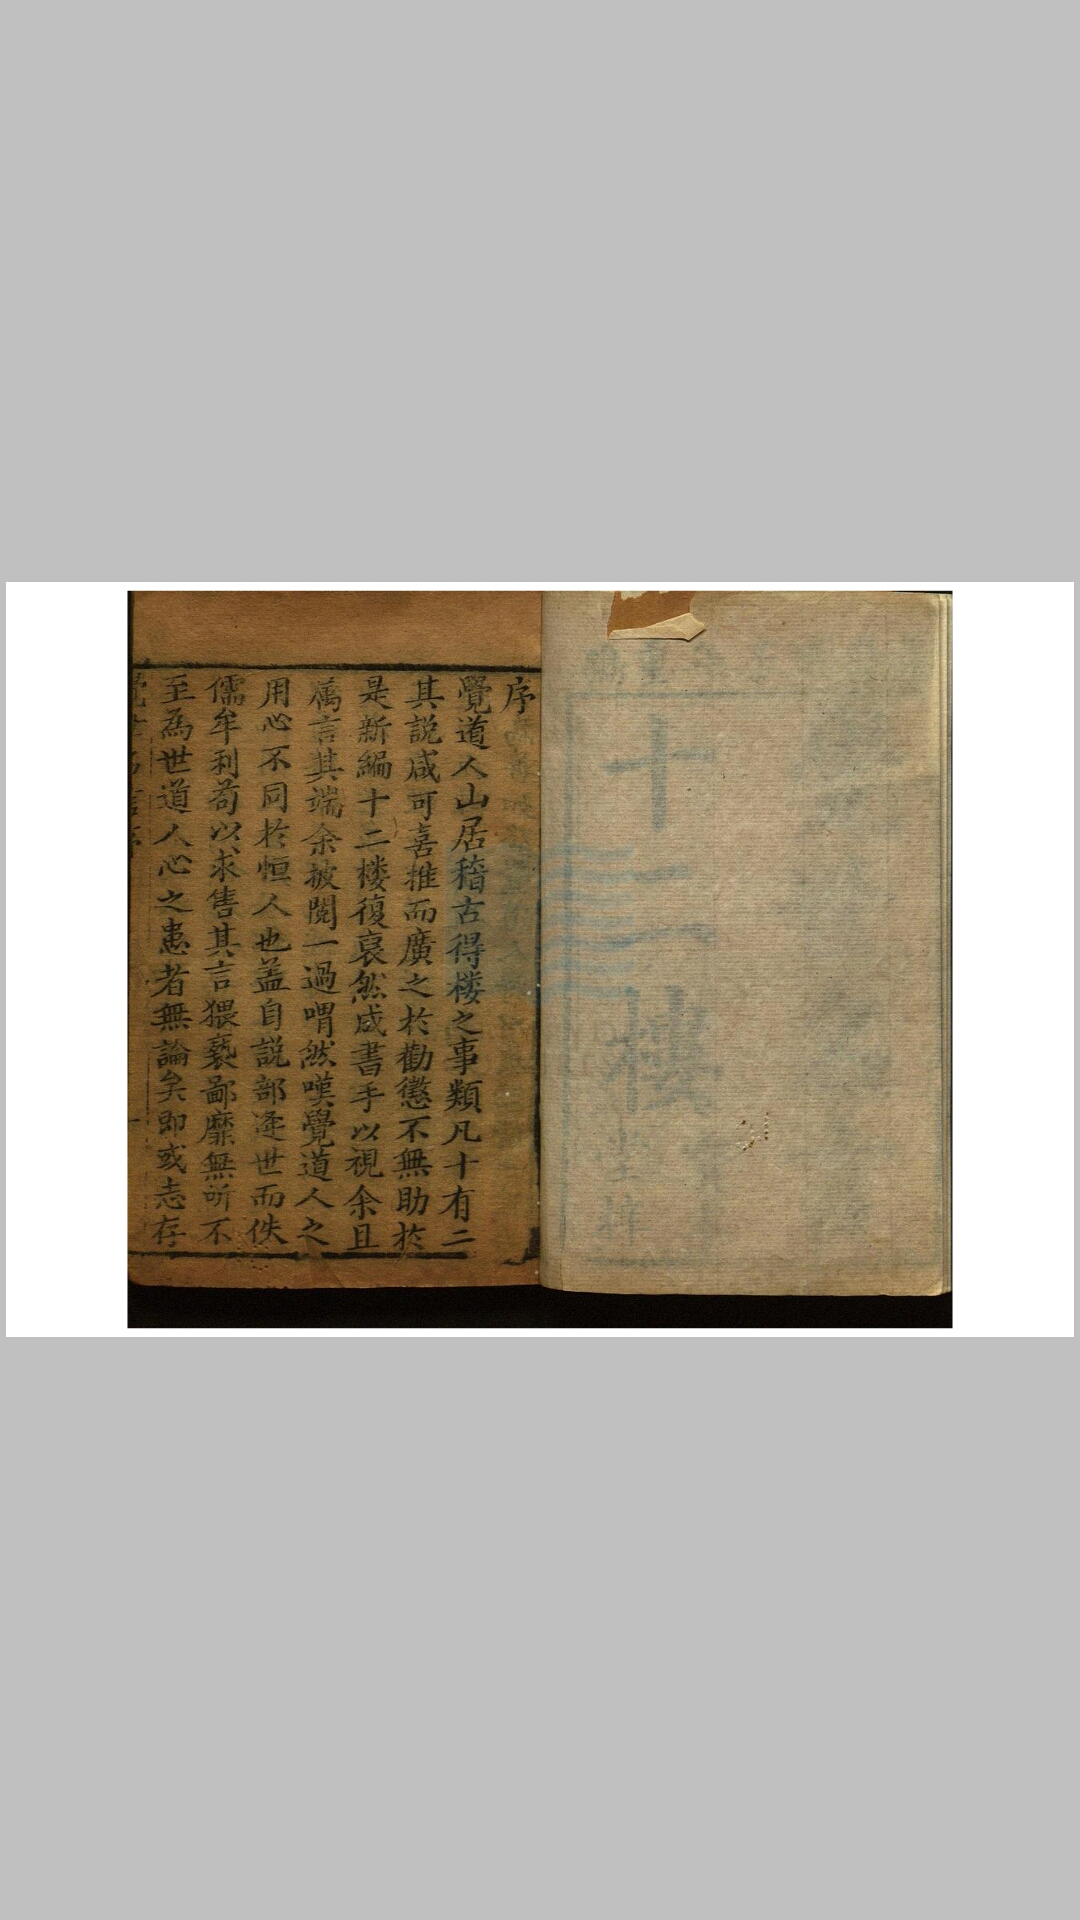 十二樓
序
覺道人山居稽古得楼之事類凡十有二
其説咸可喜推而廣之於勸懲不無助於
是新編十二楼復裒然成書手以視余且
属言其端余披閲一過喟然嘆覺道人之
用心不同於恒人也盖自説部逹世而佚
儒牟利苟以求售其言猥褻鄙靡無所不
至為世道人心之患者無論矣即或志存